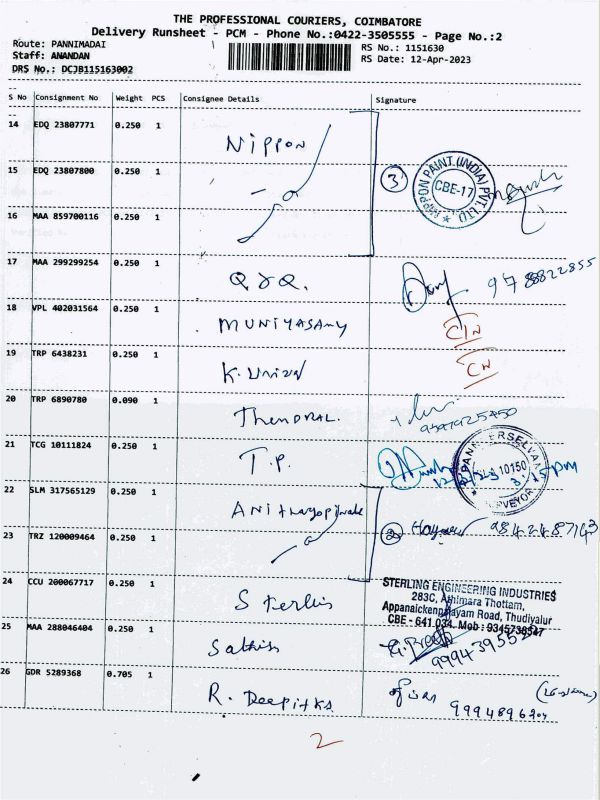 THE PROFESSIONAL COURIERS, COIMBATORE
Delivery Runsheet - PCM - Phone No.:0422-3505555 - Page No.:2
Route: PANNIMADAI
RS No.: 1151630
Staff: ANANDAN
RS Date: 12-Apr-2023
DRS No.: DCJB115163002
S No Consignment No Weight PCS Consignee Details Signature
14 EDQ 23807771 0.250 1 Nippon
15 EDQ 23807800 0.250 1 3 NIPPON PAINT (INDIA) PVT. LTD. CBE-17
16 MAA 859700116 0.250 1
17 MAA 299299254 0.250 1
18 VPL 402031564 0.250 1 MUNIYASAMY
19 TRP 6438231 0.250 1
20 TRP 6890780 0.090 1 Thendral
21 TCG 10111824 0.250 1 T.P. 10150
22 SLM 317565129 0.250 1
23 TRZ 120009464 0.250 1 2
24 CCU 200067717 0.250 1 STERLING ENGINEERING INDUSTRIES
283C, Athimara Thottam,
Appanaickenpalayam Road, Thudiyalur
CBE - 641 034. Mob : 9345736547
25 MAA 288046404 0.250 1 Sathis
26 GDR 5289368 0.705 1 R. Deepitka
2